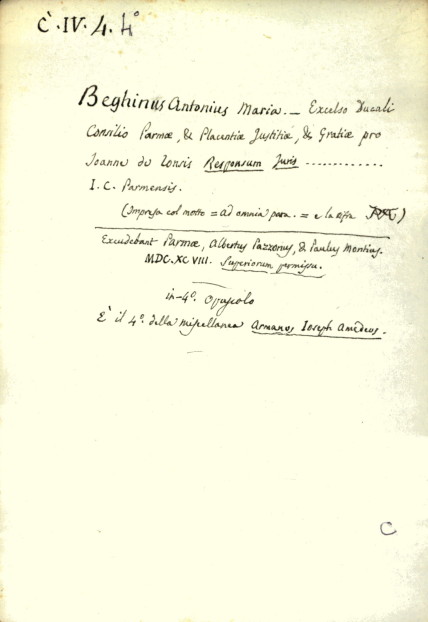 C.IV.4.4°
Beghinus Antonius Maria. _ Excelso Ducali
Consilio Parmæ, & Placentiæ Justitiæ, & Gratiæ pro
Joanne de Zonsis Responsum Juris .............
I. C. Parmensis.
(Impresa col motto = ad omnia para. = e la cifra)
Excudebant Parmæ, Albertus Pazzonus, & Paulus Montius.
MDC.XCVIII. Superiorum permissu.
in-4°. opuscolo
È il 4°. della miscellanea Armanos Ioseph Amedeus.
C